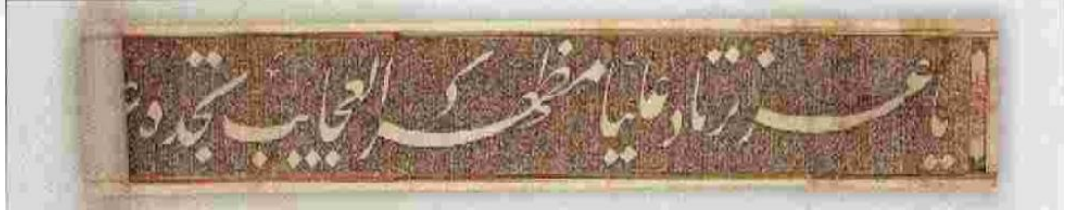 یا عزیز ناد علیا مظهر العجایب تجده